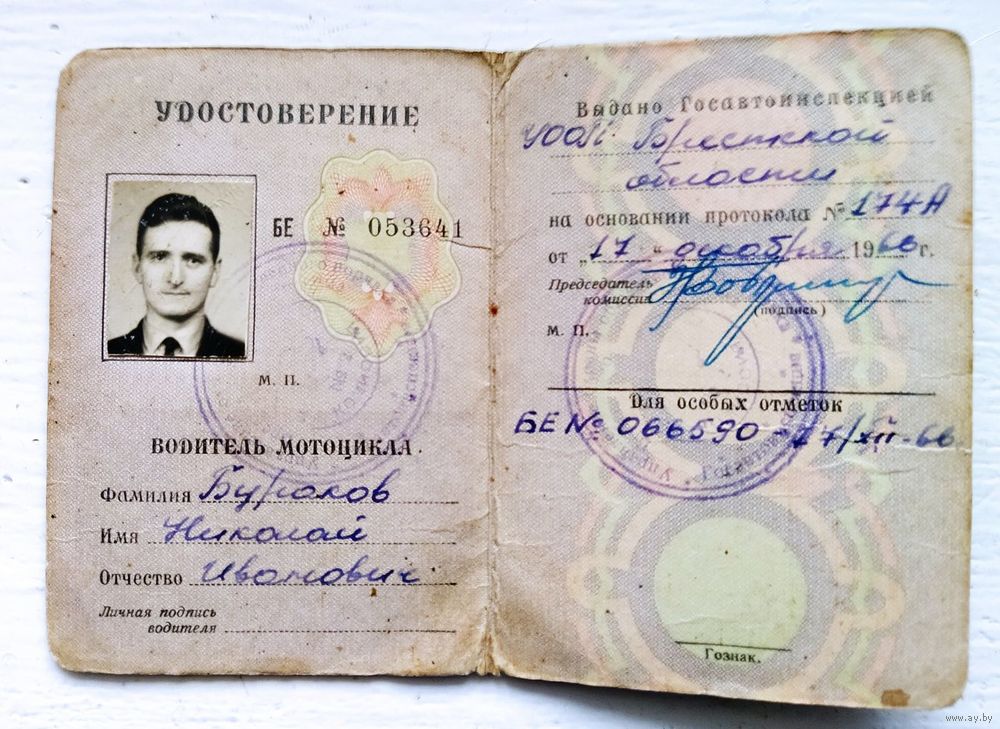 УДОСТОВЕРЕНИЕ
БЕ № 053641
М. П.
ВОДИТЕЛЬ МОТОЦИКЛА
Фамилия Бураков
Имя Николай
Отчество Иванович
Личная подпись
водителя
Выдано Госавтоинспекцией
УООП Брестской
области
на основании протокола № 174А
от „17" декабря 1966 г.
Председатель
комиссии
(подпись)
М. П.
Для особых отметок
БЕ № 066590 - 17/XII-66
Гознак.
www.ay.by